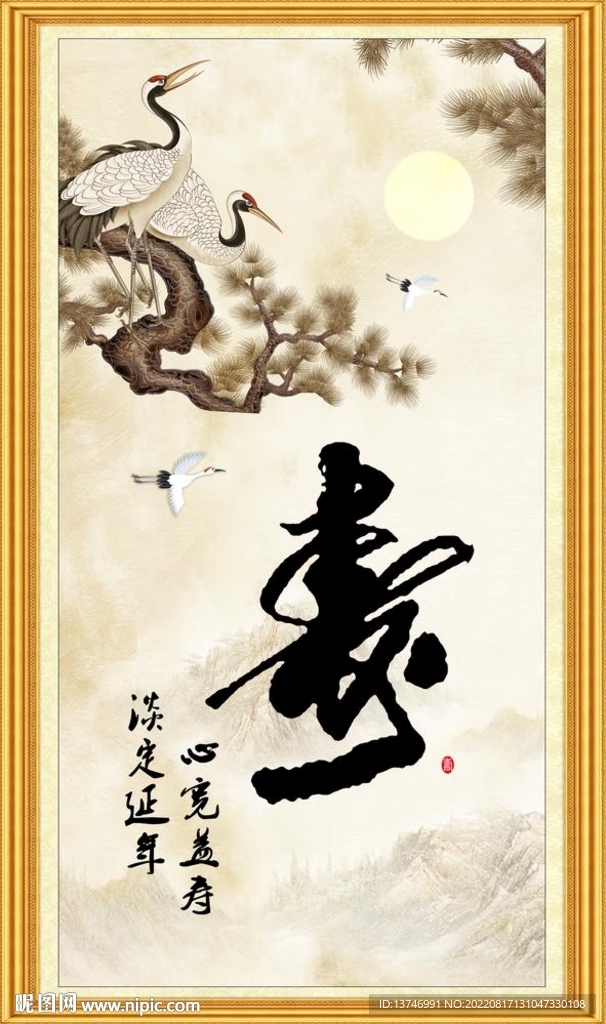 寿
心宽益寿
淡定延年
昵图网 www.nipic.com
ID:13746991 NO:20220817131047330108